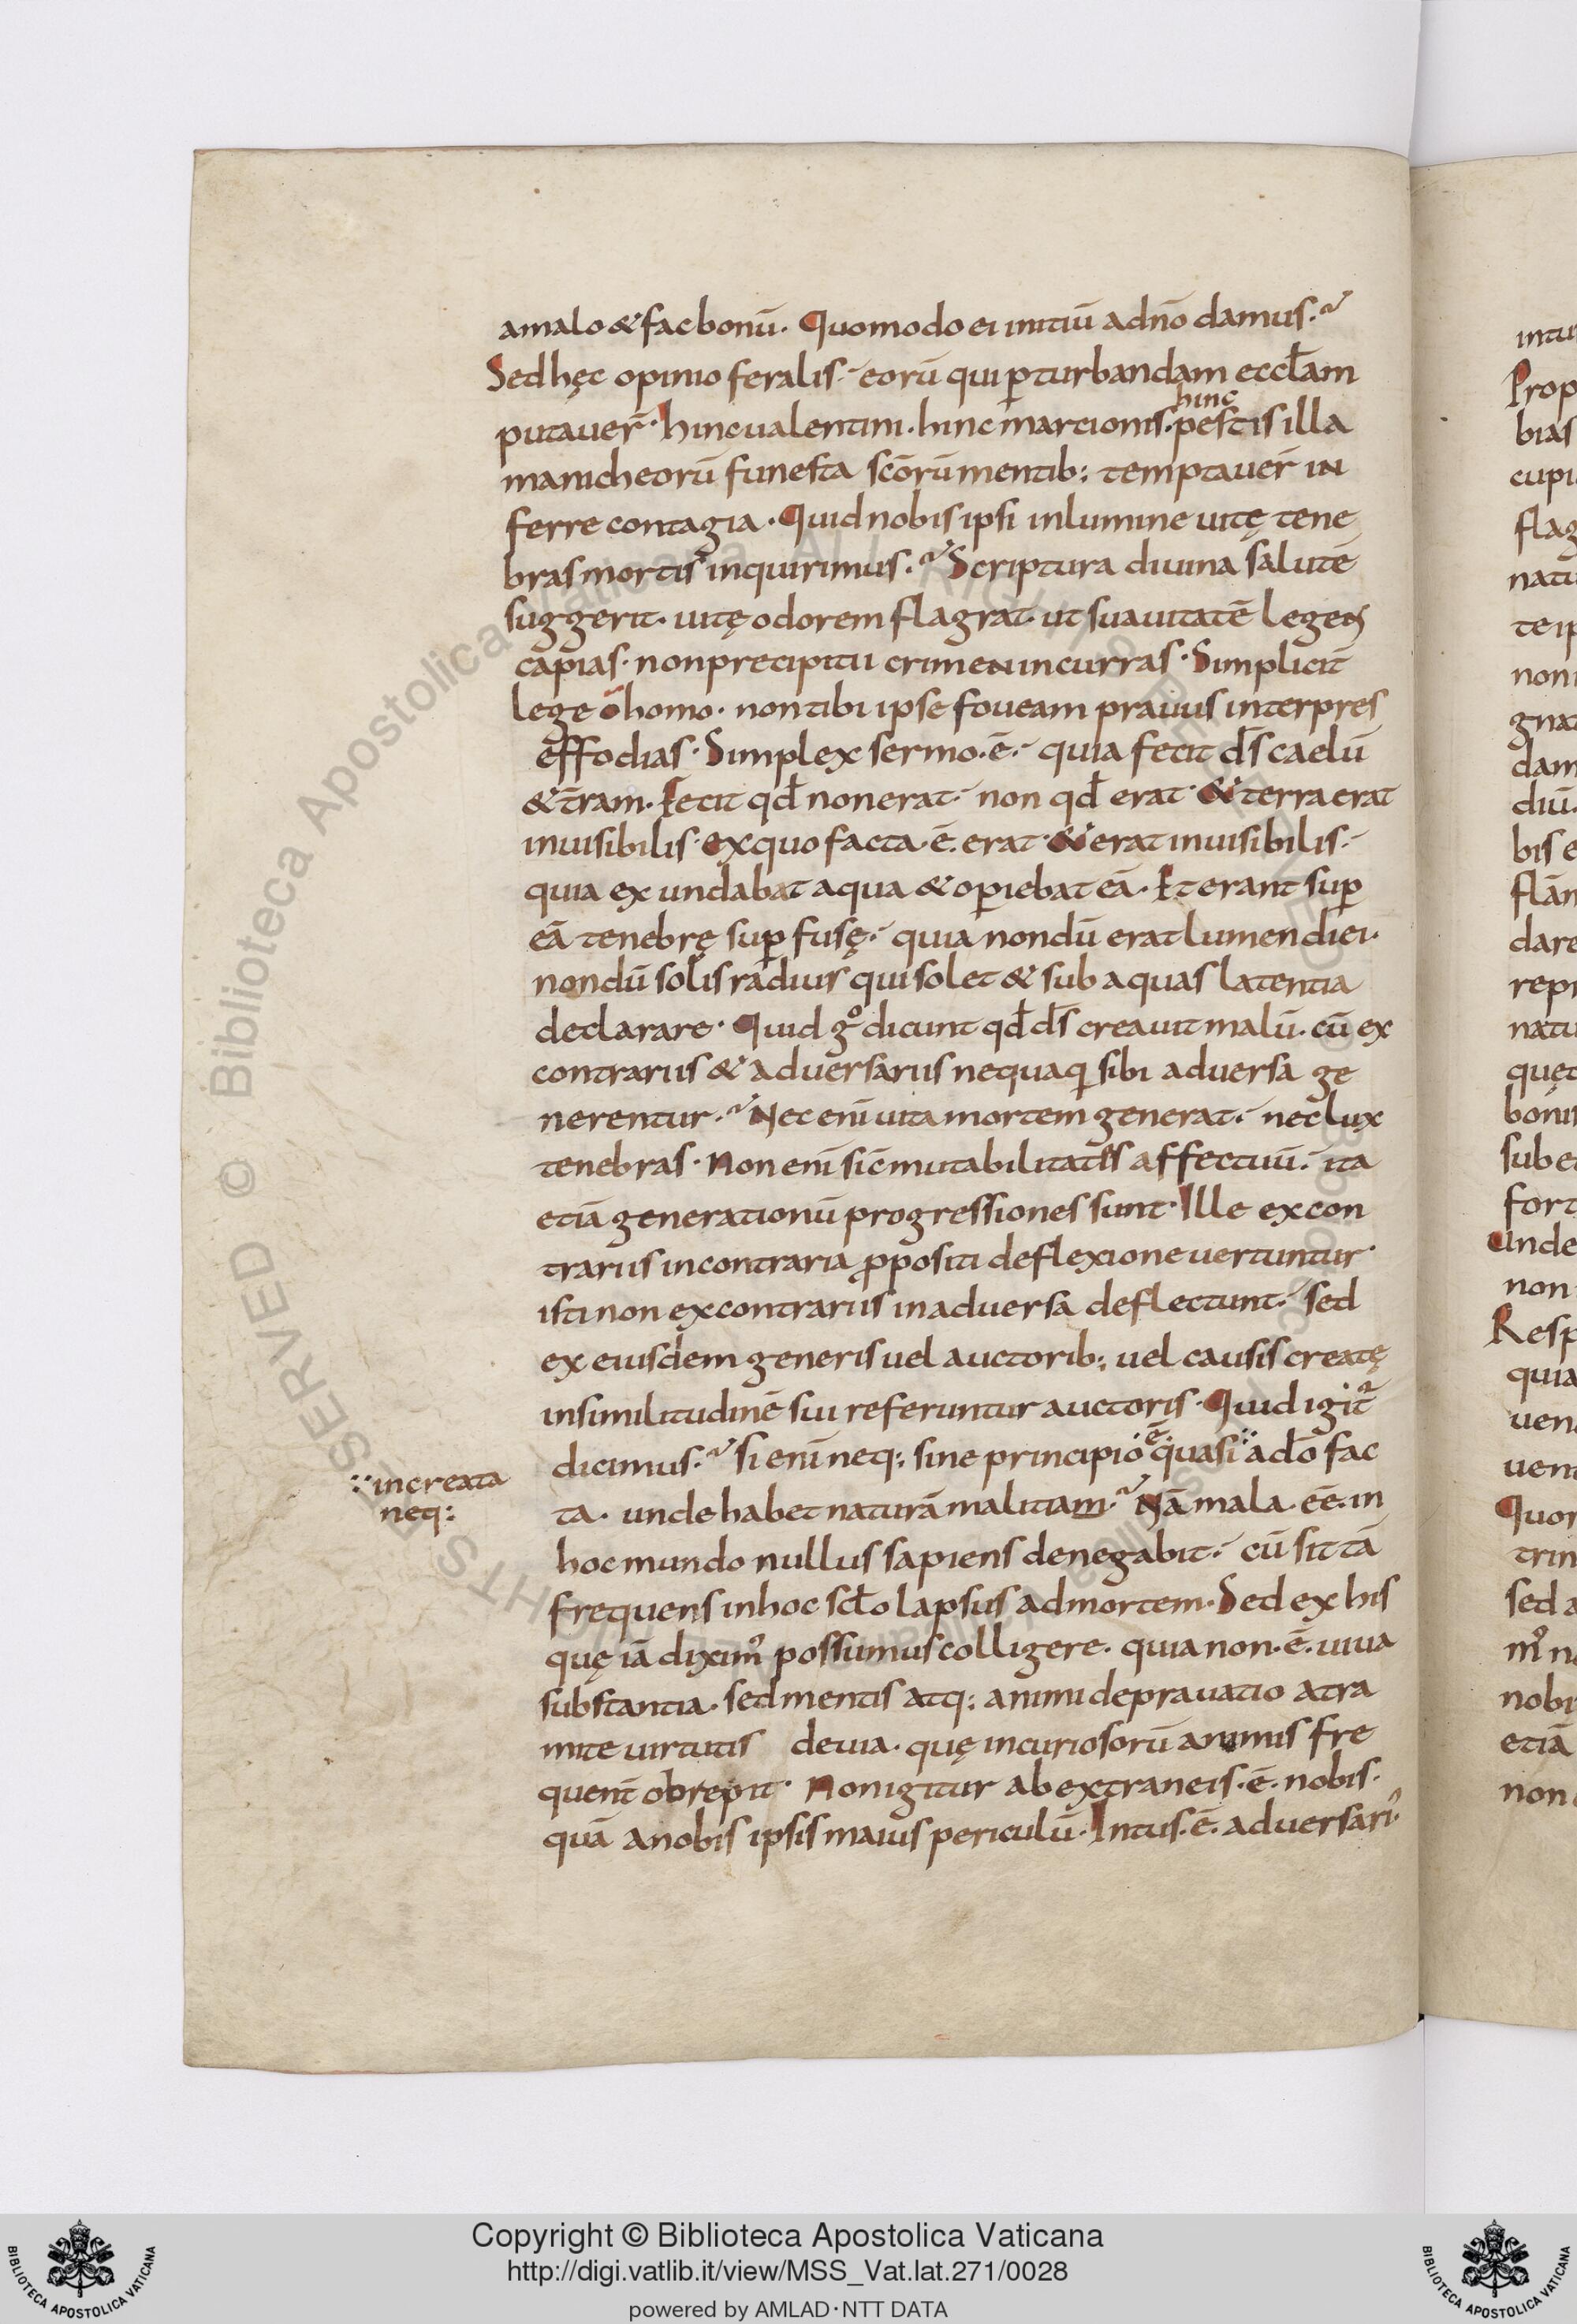 a malo & fac bonū. Quomodo ei initiū a dn̄o damus.
Sed hęc opinio feralis. eorū qui ꝑturbandam eccl̄am
putauer̄. hinc ualentini. hinc marcionis. hinc pestis illa
manicheorū funesta sc̄orū mentib; temptauer̄ in
ferre contagia. Quid nobis ipsi in lumine uitę tene
bras mortis inquirimus. Scriptura diuina salutē
suggerit. uitę odorem flagrat. ut suauitatē legens
capias. non precipitii crimen incurras. Simplicit̄
lege o homo. non tibi ipse foueam prauus interpres
effodias. Simplex sermo .ē. quia fecit ds̄ caelū
& t̄ram. Fecit qd̄ non erat. non qd̄ erat. & terra erat
inuisibilis. ex quo facta .ē. erat. & erat inuisibilis.
quia exundabat aqua & oꝑiebat eā. Et erant suꝑ
eā tenebrę suꝑfusę. quia nondū erat lumen diei.
nondū solis radius qui solet & sub aquas latentia
declarare. Quid gͦ dicunt qd̄ ds̄ creauit malū. cū ex
contrariis & aduersariis nequaq̄ sibi aduersa ge
nerentur. Nec enī uita mortem generat. nec lux
tenebras. Non enī sic̄ mutabilitates affectuū. ita
etiā generationū progressiones sunt. Ille ex con
trariis in contraria ꝓpositi deflexione uertuntur.
isti non ex contrariis in aduersa deflectunt. sed
ex eiusdem generis uel auctorib; uel causis creatę
in similitudinē sui referuntur auctoris. Quid igit᷑
dicimus. si enī neq; sine principio .ē. quasi ∵ a do͞ fac
∵ increata
neq;
ta. unde habet naturā malitiam. Nā mala .ēe. in
hoc mundo nullus sapiens denegabit. cū sit tā
frequens in hoc scl̄o lapsus ad mortem. Sed ex his
quę iā diximꝰ possumus colligere. quia non .ē. uiua
substantia. sed mentis atq; animi deprauatio a tra
mite uirtutis deuia. quę incuriosorū animis fre
quent̄ obrepit. Non igitur ab extraneis .ē. nobis.
quā a nobis ipsis maius periculū. Intus .ē. aduersariꝰ.
intu
Prop
bias
cupi
flag
natu
te ip
non
gnat
dam
diū.
bis e
flām
dare
repr
natu
quęt
bonit
sub e
fort
Unde
non
Resp
quia
ueni
uent
Quon
trin
sed a
mꝰ n
nobi
etiā
non
© Biblioteca Apostolica Vaticana
ALL RIGHTS RESERVED
Copyright © Biblioteca Apostolica Vaticana
http://digi.vatlib.it/view/MSS_Vat.lat.271/0028
powered by AMLAD·NTT DATA
BIBLIOTECA APOSTOLICA VATICANA
BIBLIOTECA APOSTOLICA VATICANA